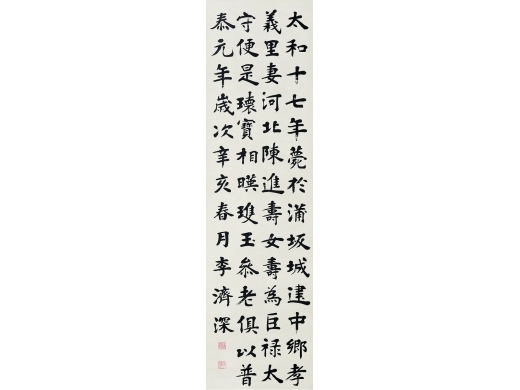 太和十七年薨於蒲坂城建中鄉孝
義里妻河北陳進壽女壽為巨禄太
守便是瓌寶相暎瓊玉叅差俱以普
泰元年歲次辛亥春月李濟深